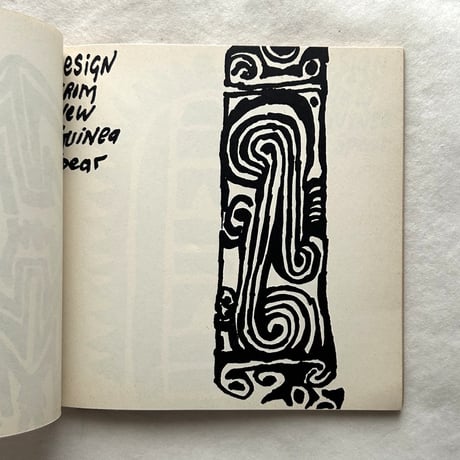 ESiGN
ROM
EW
UINEA
pear